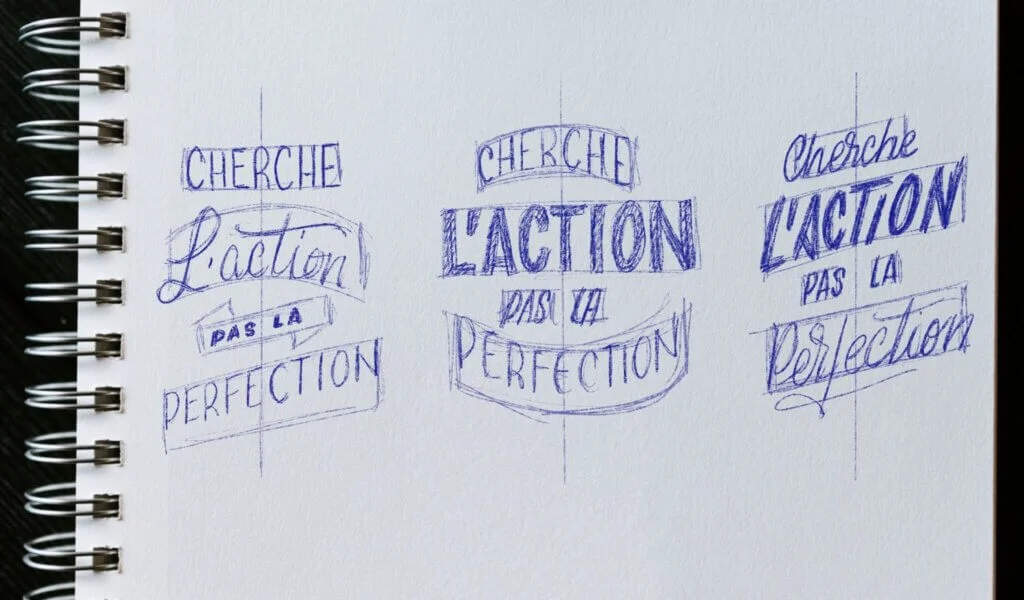 CHERCHE
L'action
PAS LA
PERFECTION
CHERCHE
L'ACTION
PAS LA
PERFECTION
Cherche
L'ACTION
PAS LA
Perfection